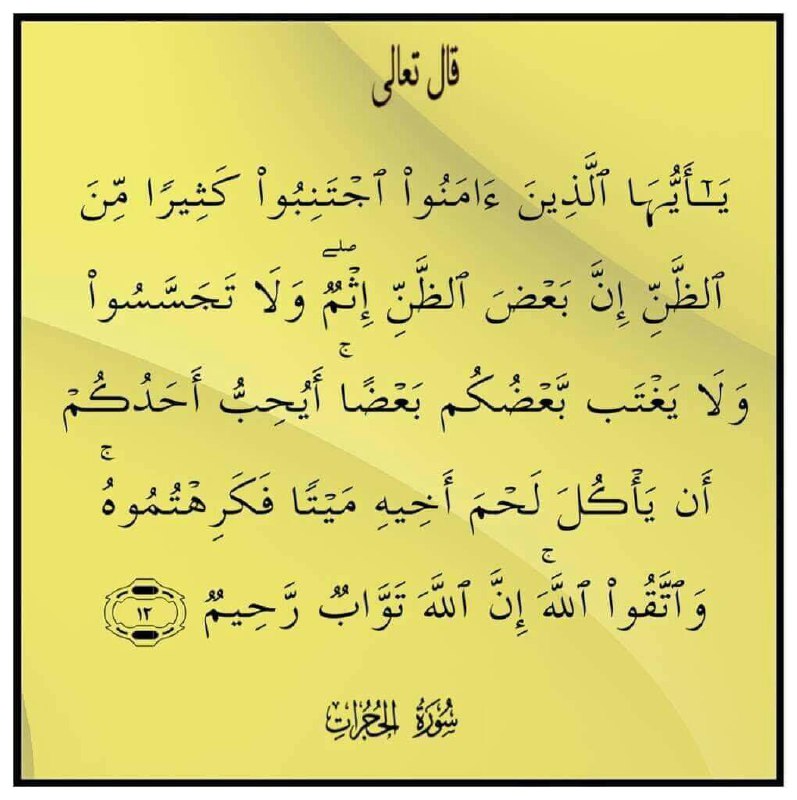 قال تعالى
يَـٰٓأَيُّهَا ٱلَّذِينَ ءَامَنُوا۟ ٱجْتَنِبُوا۟ كَثِيرًا مِّنَ
ٱلظَّنِّ إِنَّ بَعْضَ ٱلظَّنِّ إِثْمٌۭ ۖ وَلَا تَجَسَّسُوا۟
وَلَا يَغْتَب بَّعْضُكُم بَعْضًا ۚ أَيُحِبُّ أَحَدُكُمْ
أَن يَأْكُلَ لَحْمَ أَخِيهِ مَيْتًا فَكَرِهْتُمُوهُ ۚ
وَٱتَّقُوا۟ ٱللَّهَ ۚ إِنَّ ٱللَّهَ تَوَّابٌۭ رَّحِيمٌۭ ١٢
سُورَةُ الحُجُرَاتِ